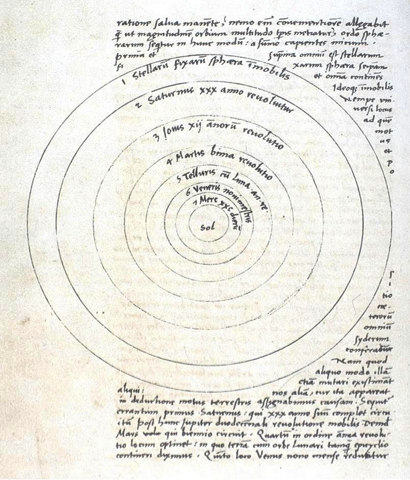 ratione salua manēte, nemo em̄ conuenientiore allegabit
q̄ ut magnitudinē orbium multitudo tp̄is metiatur, ordo sphæ-
rarum sequitur in hunc modū: a sum̄o capientes initium.
prima et suprema omniū est stellarum
fi xarum sphæra seipsam
et omnia continēs
Ideoq; im̄obilis
Nempe uni-
uersi locus
ad quē
mot
us
et
p
o
1 Stellarū fixarū sphæra im̄obilis
2 Saturnus xxx anno reuoluitur
3 Iouis xij annorū reuolutio
4 Martis bima reuolutio
5 Telluris cū luna an. re.
6 Veneris nonimestris
7 Merc xxc dierū
Sol
s
i
tio
ce-
terorū
omniū
syderum
conferatur
Nam quod
aliquo modo illā
etiā mutari existimāt
aliqui: nos aliā, cur ita appareat
in deductione motus terrestris assignabimus causam. Sequit
errantium primus Saturnus: qui xxx anno suū complet circu
itū post hunc Iupiter duodecenali reuolutione mobilis Deinde
Mars qui biennio circuit. Quartū in ordine annua reuolu
tio locum optinet: in quo terra cum orbe lunari tanq̄ epicyclio
contineri diximus. Quinto loco Venus nono mense reducitur